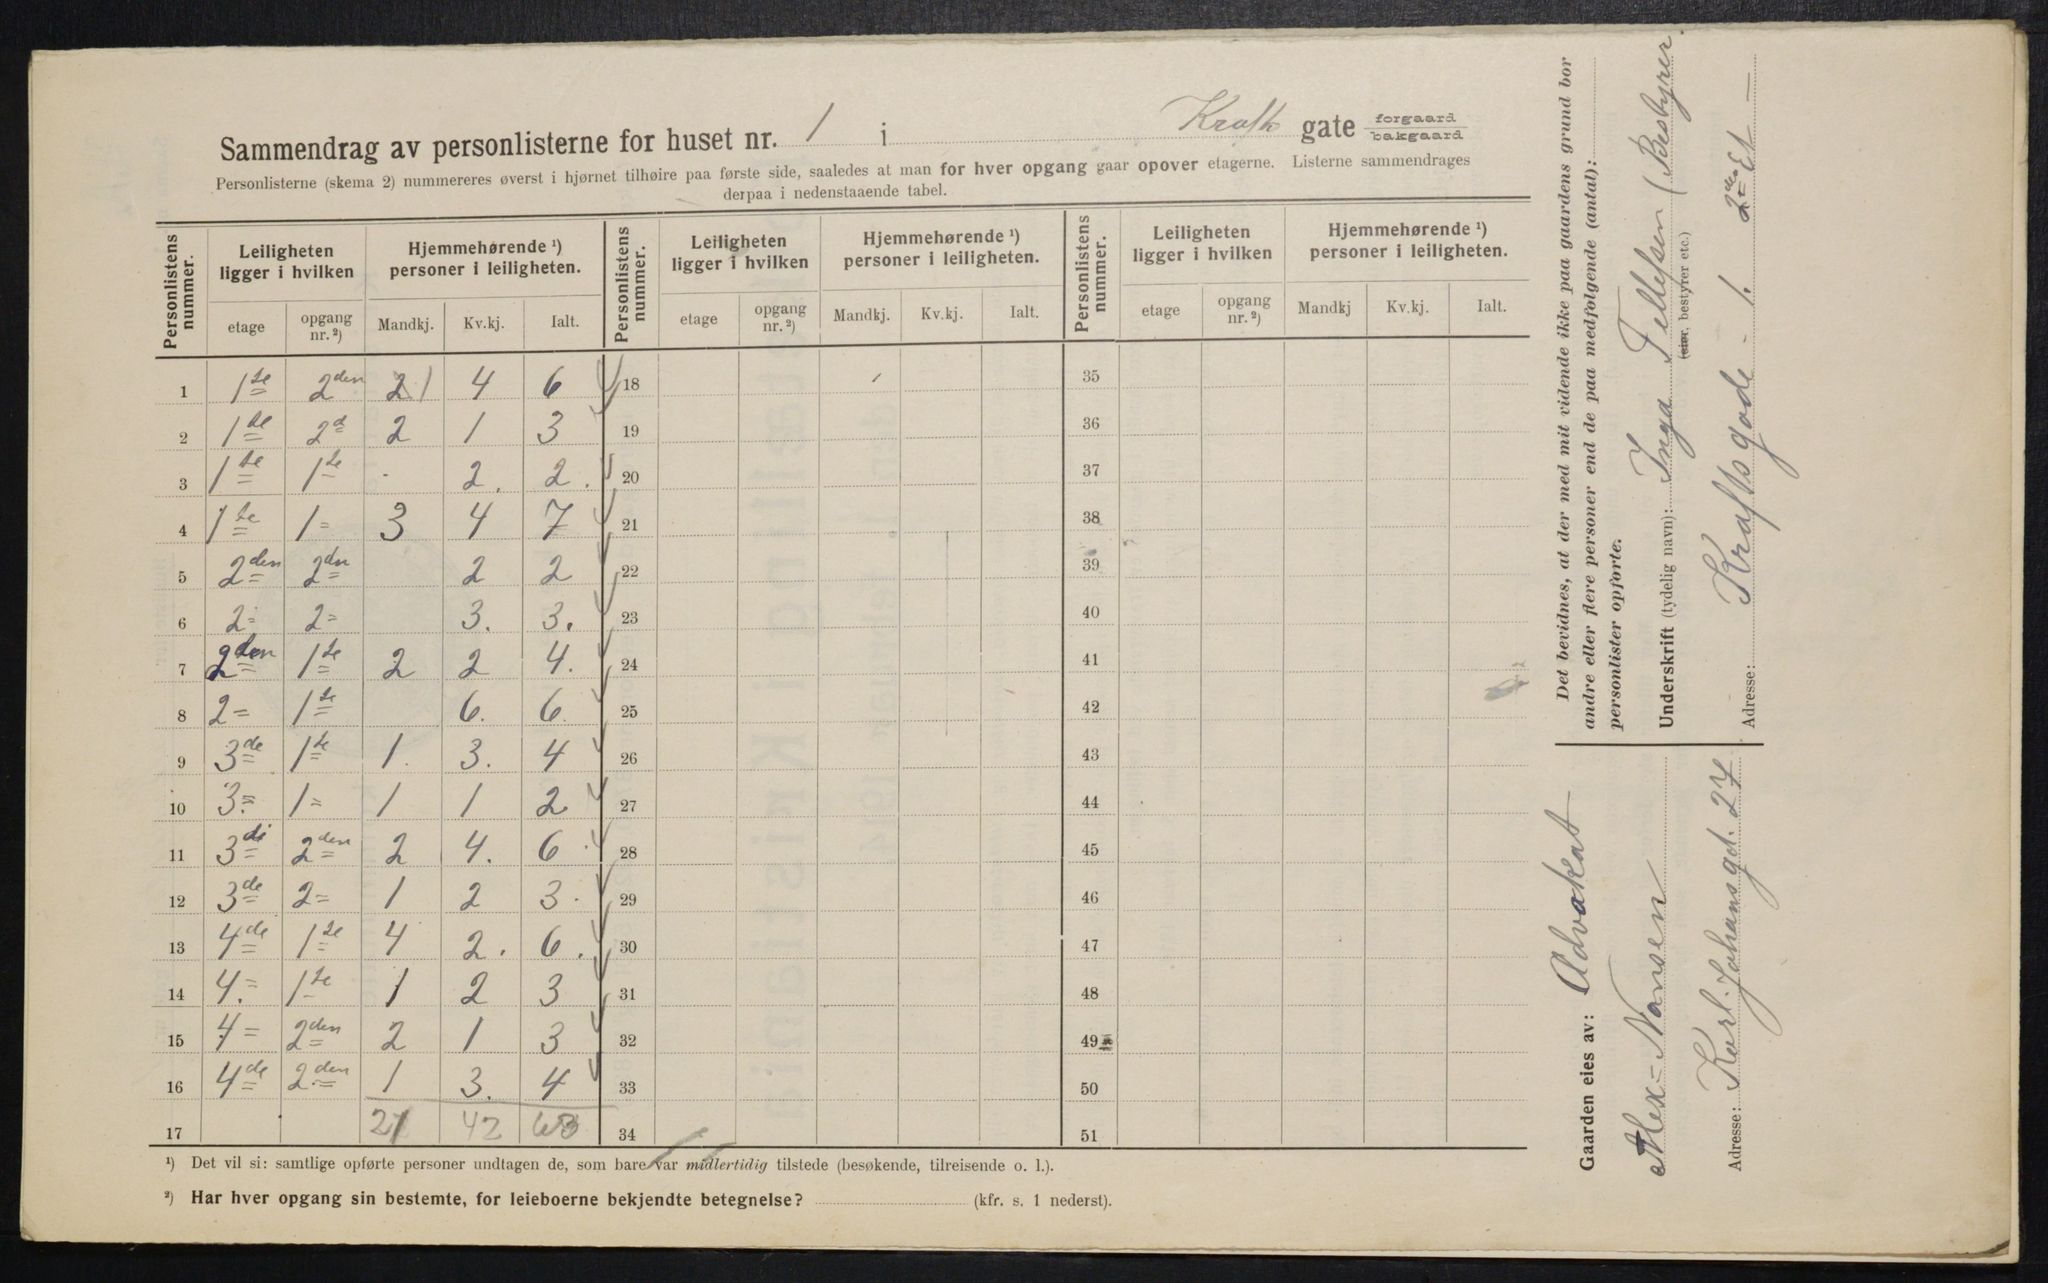 Sammendrag av personlisterne for huset nr. 1 i Krafts gate forgaard bakgaard
Personlisterne (skema 2) nummereres øverst i hjørnet tilhøire paa første side, saaledes at man for hver opgang gaar opover etagerne. Listerne sammendrages
derpaa i nedenstaaende tabel.
Personlistens nummer. Leiligheten ligger i hvilken Hjemmehørende ¹) personer i leiligheten. Personlistens nummer. Leiligheten ligger i hvilken Hjemmehørende ¹) personer i leiligheten. Personlistens nummer. Leiligheten ligger i hvilken Hjemmehørende ¹) personer i leiligheten.
etage opgang nr. ²) Mandkj. Kv.kj. Ialt. etage opgang nr. ²) Mandkj. Kv.kj. Ialt. etage opgang nr. ²) Mandkj Kv.kj. Ialt.
1 1ste 2den 2 4 6 18 35
2 1ste 2d 2 1 3 19 36
3 1ste 1ste - 2. 2. 20 37
4 1ste 1= 3 4 7 21 38
5 2den 2den 2 2 22 39
6 2= 2= 3. 3. 23 40
7 2den 1ste 2 2 4. 24 41
8 2= 1ste 6. 6. 25 42
9 3de 1ste 1. 3. 4 26 43
10 3= 1= 1 1 2 27 44
11 3di 2den 2 4. 6 28 45
12 3de 2= 1 2 3. 29 46
13 4de 1ste 4 2. 6. 30 47
14 4.= 1ste 1 2 3 31 48
15 4= 2den 2 1 3 32 49
16 4de 2den 1 3. 4 33 50
17 21 42 63 34 51
¹) Det vil si: samtlige opførte personer undtagen de, som bare var midlertidig tilstede (besøkende, tilreisende o. l.).
²) Har hver opgang sin bestemte, for leieboerne bekjendte betegnelse? (kfr. s. 1 nederst).
Det bevidnes, at der med mit vidende ikke paa gaardens grund bor
andre eller flere personer end de paa medfølgende (antal):
personlister opførte.
Underskrift (tydelig navn): Inga Tellefsen (Bestyrer.
(eier, bestyrer etc.)
Adresse: Kraftsgade - 1. 2den Et -
Gaarden eies av: Advokat
Alex= Nansen
Adresse: Karl. Johansgd. 27